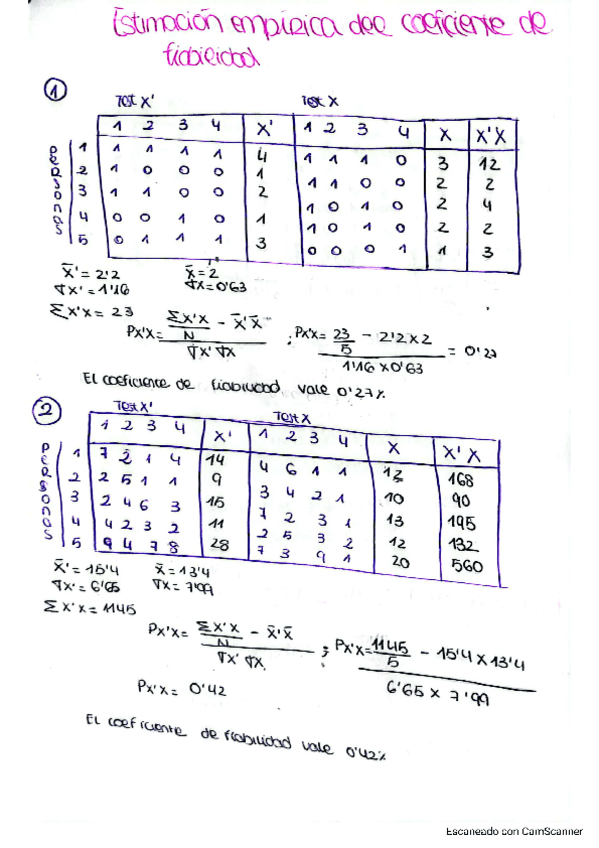 Estimación empírica del coeficiente de
fiabilidad
1
Test X' Test X
1 2 3 4 X' 1 2 3 4 X X'X
Personas
1 1 1 1 1 4 1 1 1 0 3 12
2 1 0 0 0 1 1 1 0 0 2 2
3 1 1 0 0 2 1 0 1 0 2 4
4 0 0 1 0 1 1 0 1 0 2 2
5 0 1 1 1 3 0 0 0 1 1 3
X̄' = 2'2 X̄ = 2
∇X' = 1'16 ∇X = 0'63
ΣX'X = 23
Px'x = (ΣX'X / N - X̄'X̄) / ∇X' ∇X ; Px'x = (23 / 5 - 2'2 x 2) / 1'16 x 0'63 = 0'27
El coeficiente de fiabilidad vale 0'27%
2
Test X' Test X
1 2 3 4 X' 1 2 3 4 X X'X
Personas
1 7 2 1 4 14 4 6 1 1 12 168
2 2 5 1 1 9 3 4 2 1 10 90
3 2 4 6 3 15 7 2 3 1 13 195
4 4 2 3 2 11 2 5 3 2 12 132
5 9 4 7 8 28 7 3 9 1 20 560
X̄' = 15'4 X̄ = 13'4
∇X' = 6'65 ∇X = 7'99
ΣX'X = 1145
Px'x = (ΣX'X / N - X̄'X̄) / ∇X' ∇X ; Px'x = (1145 / 5 - 15'4 x 13'4) / 6'65 x 7'99
Px'x = 0'42
El coeficiente de fiabilidad vale 0'42%
Escaneado con CamScanner